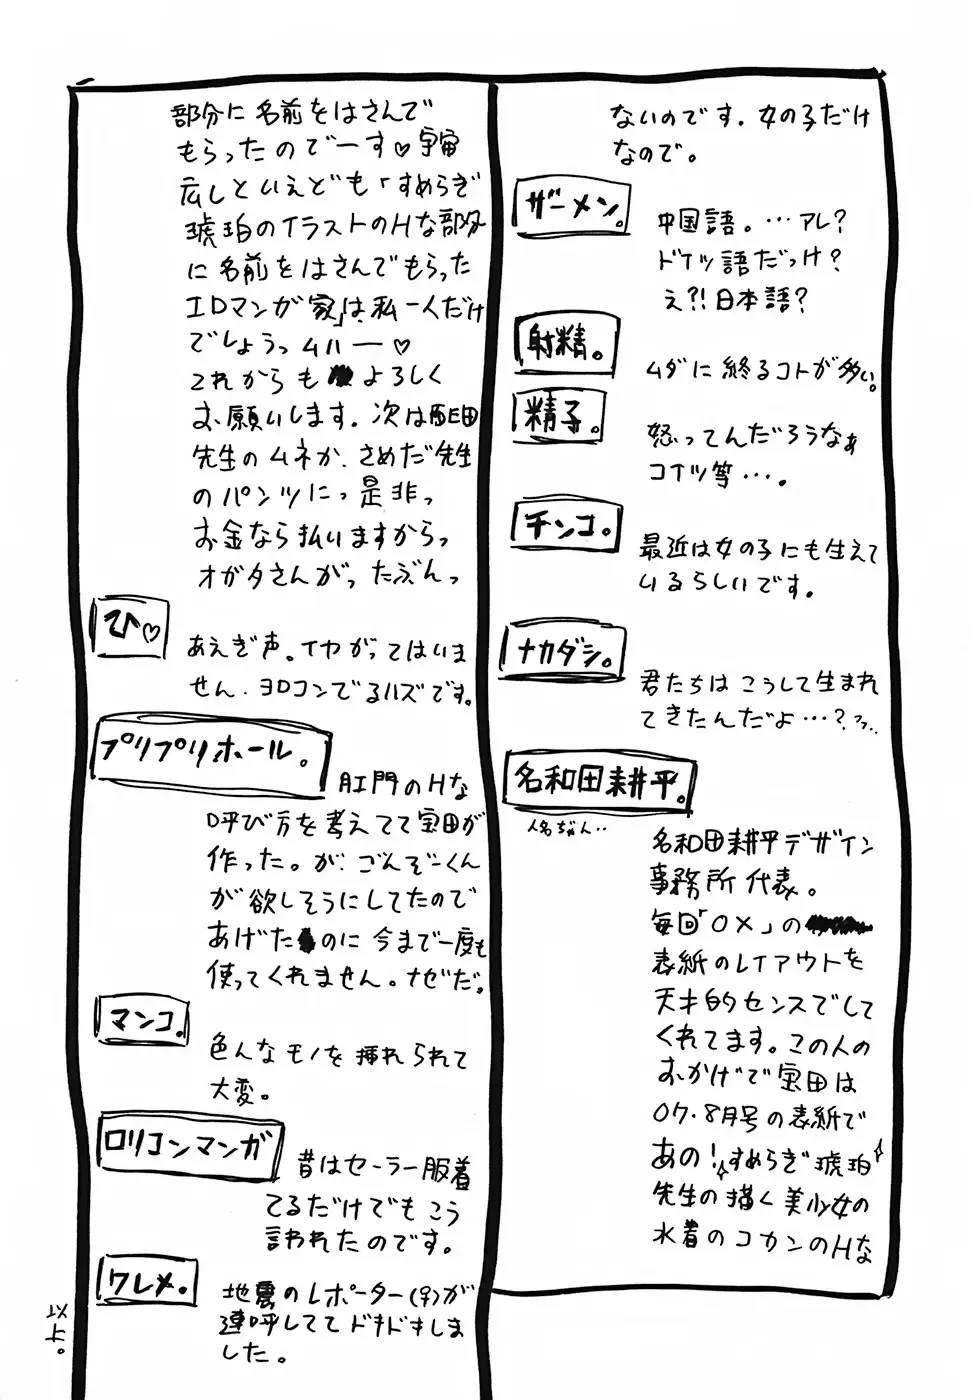 ないのです。女の子だけ
なので。
ザーメン。
中国語。…アレ?
ドイツ語だっけ?
え?!日本語?
射精。
ムダに終るコトが多い。
精子。
怒ってんだろうなぁ
コイツ等…。
チンコ。
最近は女の子にも生えて
いるらしいです。
ナカダシ。
君たちはこうして生まれ
てきたんだよ…?フフ..
名和田耕平。
人名ぢゃん..
名和田耕平デザイン
事務所代表。
毎回「OX」の
表紙のレイアウトを
天才的センスでして
くれてます。この人の
おかげで宝田は
07.8月号の表紙で
あの!すめらぎ琥珀
先生の描く美少女の
水着のコカンのHな
部分に名前をはさんで
もらったのでーす♡宇宙
広しといえども「すめらぎ
琥珀のイラストのHな部分
に名前をはさんでもらった
エロマンガ家」は、私一人だけ
でしょうっムハー♡
これからもよろしく
お願いします。次は
先生のムネか、さめだ先生
のパンツにっ是非っ
お金なら払いますからっ
オガタさんがったぶんっ
ひ♡
あえぎ声。イヤがってはいま
せん、ヨロコンでるハズです。
プリプリホール。
肛門のHな
呼び方を考えてて宝田が
作った。が、ごんぞーくん
が欲しそうにしてたので
あげたのに今まで一度も
使ってくれません。ナゼだ。
マンコ。
色んなモノを挿れられて
大変。
ロリコンマンガ
昔はセーラー服着
てるだけでもこう
言われたのです。
ワレメ。
地震のレポーター(♀)が
連呼しててドキドキしま
した。